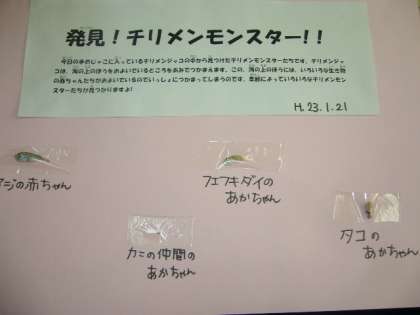 発見！チリメンモンスター！！
今日の手のじゃこに入っているチリメンジャコの中から見つけたチリメンモンスターたちです。チリメンジャ
コは、海の上のほうをおよいでいるところをあみでつかまえます。この、海の上のほうには、いろいろな生き物
の赤ちゃんたちがおよいでいるのでいっしょにつかまってしまうのです。季節によっていろいろなチリメンモン
スターたちが見つかりますよ！
H.23.1.21
アジの赤ちゃん
フエフキダイの
あかちゃん
カニの仲間の
あかちゃん
タコの
あかちゃん